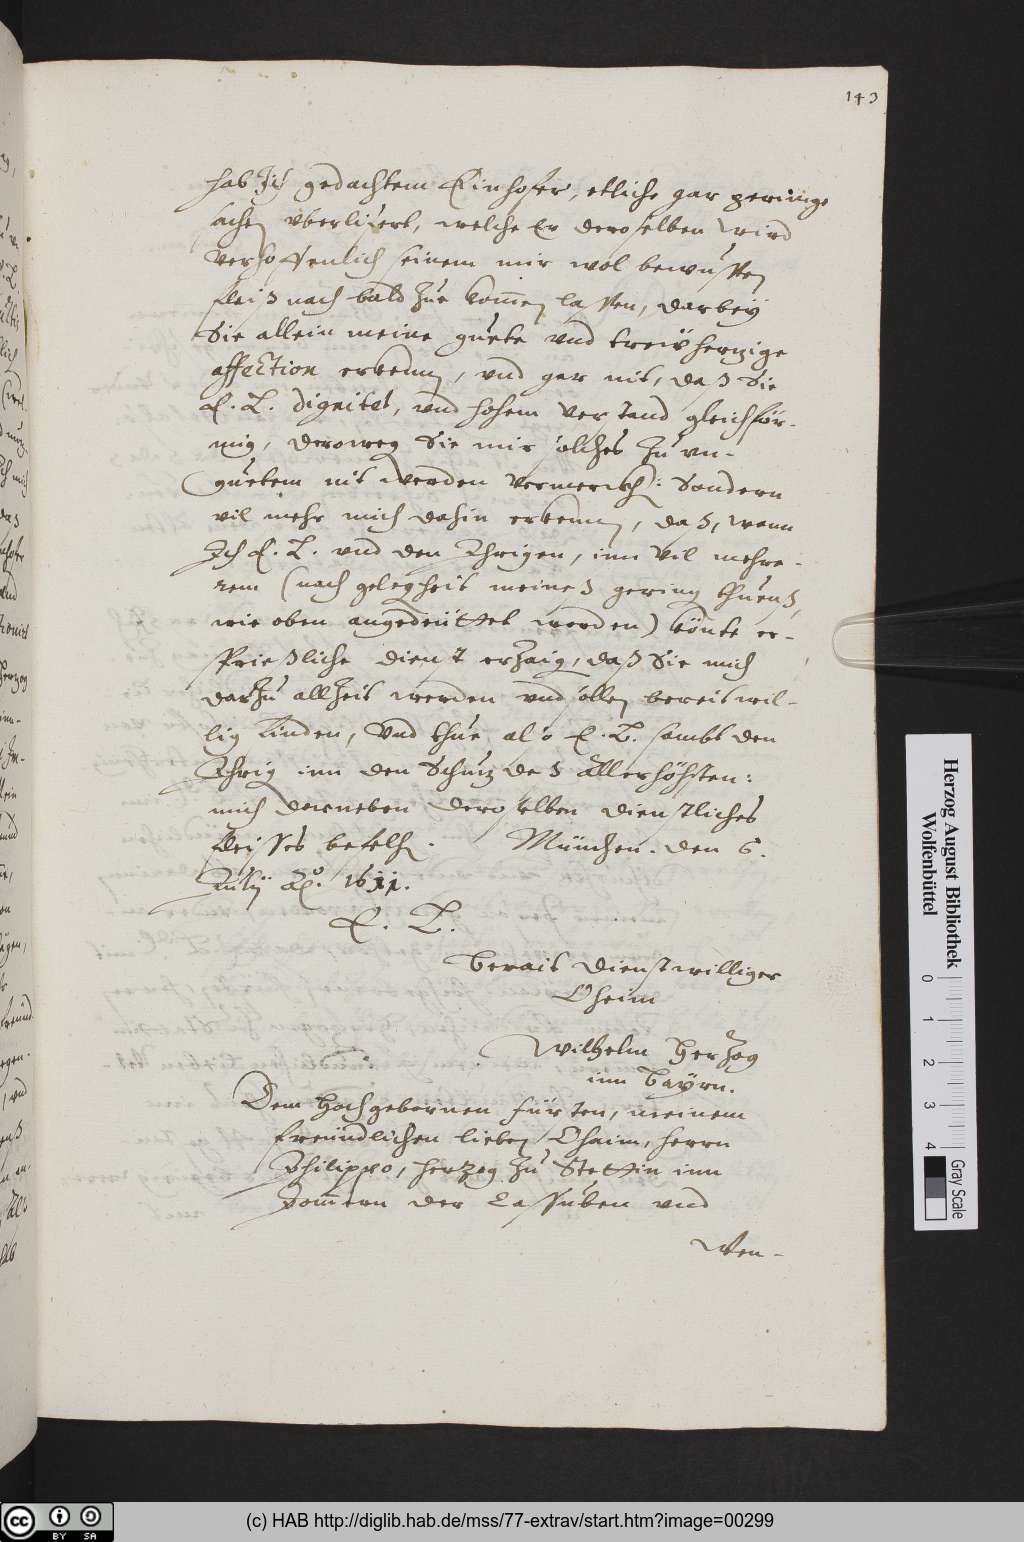 143
hab Ich gedachtem Einhofer, etliche gar geringe
sachen überlifert, welche Er deroselben wird
verhoffenlich seinem mir wol bewusten
fleiß nach bald zue komen lassen, darbey
Sie allein meine guete und treühertzige
affection erkennen, und gar nit, daß Sie
E. L. dignitet, und hohem verstand gleichför-
mig, derowegen Sie mir solches zu un-
guetem nit werden vermercken: Sondern
vil mehr mich dahin erkennen, daß, wann
Ich E. L. und den Ihrigen, inn vil mehre-
rem (nach gelegenheit meines gering thuens,
wie oben angedeüttet worden) könte er-
sprießliche dienst erzaigen, daß Sie mich
darzu allzeit werden und sollen bereitwil-
lig finden, Und thue also E. L. sambt den
Ihrigen inn den Schutz des Allerhöhsten:
mich darneben deroselben dienstliches
fleisses befelhen. München. den 6.
Julij Aō. 1611.
E. L.
Berait dienstwilliger
Oheim
Wilhelm Hertzog
inn Bayrn.
Dem Hochgebornen fürsten, meinem
freündlichen lieben Ohaim, herrn
Philippo, hertzog zu Stettin inn
Pomern der Cassuben und
Wen-
Herzog August Bibliothek
Wolfenbüttel
0 1 2 3 4
Gray Scale
cc BY SA
(c) HAB http://diglib.hab.de/mss/77-extrav/start.htm?image=00299